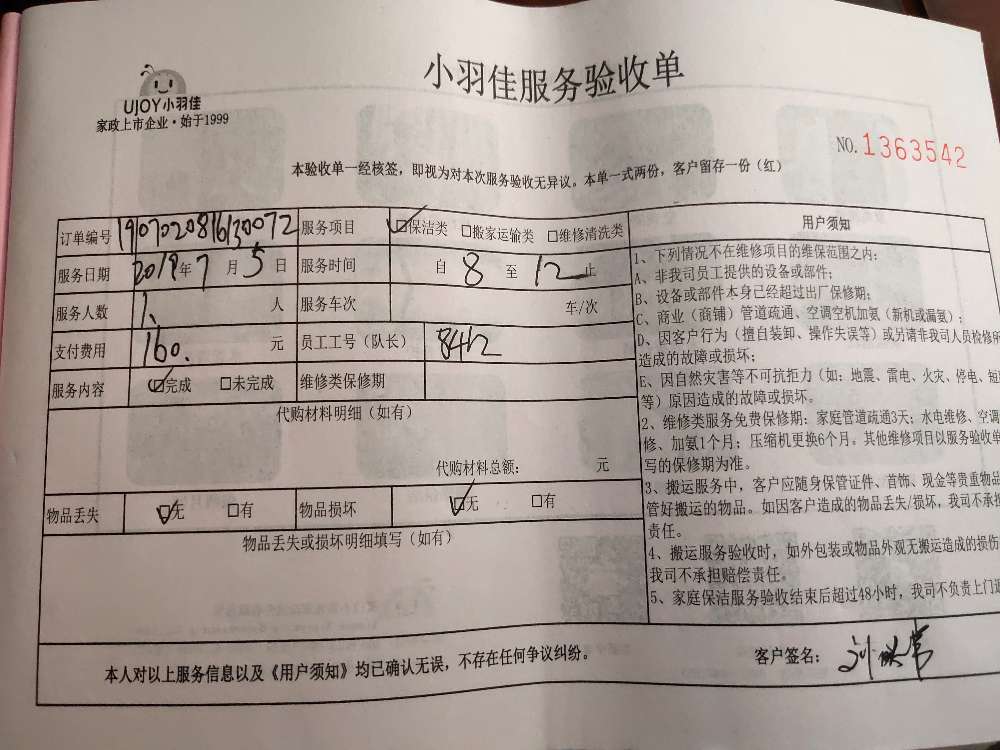 小羽佳服务验收单
UJOY小羽佳
家政上市企业·始于1999
NO.1363542
本验收单一经核签，即视为对本次服务验收无异议。本单一式两份，客户留存一份（红）
订单编号 190702081630072 服务项目 ☑保洁类 □搬家运输类 □维修清洗类
服务日期 2019年7月5日 服务时间 自 8 至 12 止
服务人数 1、 人 服务车次 车/次
支付费用 160. 元 员工工号（队长） 8412
服务内容 ☑完成 □未完成 维修类保修期
代购材料明细（如有）
代购材料总额： 元
物品丢失 ☑无 □有 物品损坏 ☑无 □有
物品丢失或损坏明细填写（如有）
用户须知
1、下列情况不在维修项目的维保范围之内：
A、非我司员工提供的设备或部件；
B、设备或部件本身已经超过出厂保修期；
C、商业（商铺）管道疏通、空调空机加氨（新机或漏氨）；
D、因客户行为（擅自装卸、操作失误等）或另请非我司人员检修所
造成的故障或损坏；
E、因自然灾害等不可抗拒力（如：地震、雷电、火灾、停电、短
等）原因造成的故障或损坏。
2、维修类服务免费保修期：家庭管道疏通3天；水电维修、空调
修、加氨1个月；压缩机更换6个月。其他维修项目以服务验收单
写的保修期为准。
3、搬运服务中，客户应随身保管证件、首饰、现金等贵重物品
管好搬运的物品。如因客户造成的物品丢失/损坏，我司不承担
责任。
4、搬运服务验收时，如外包装或物品外观无搬运造成的损伤
我司不承担赔偿责任。
5、家庭保洁服务验收结束后超过48小时，我司不负责上门返
本人对以上服务信息以及《用户须知》均已确认无误，不存在任何争议纠纷。 客户签名：